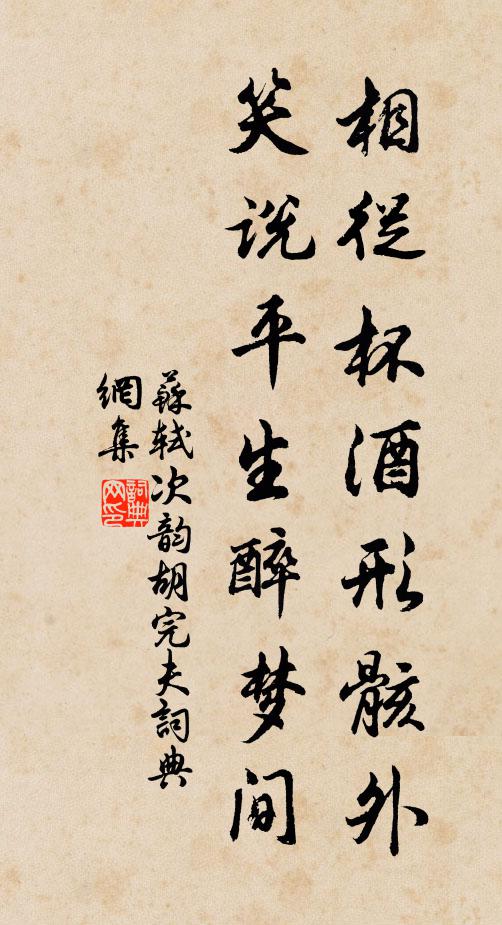 相從杯酒形骸外
笑说平生醉梦间
蘇軾次韵胡完夫詞典
網集
詞典
网印